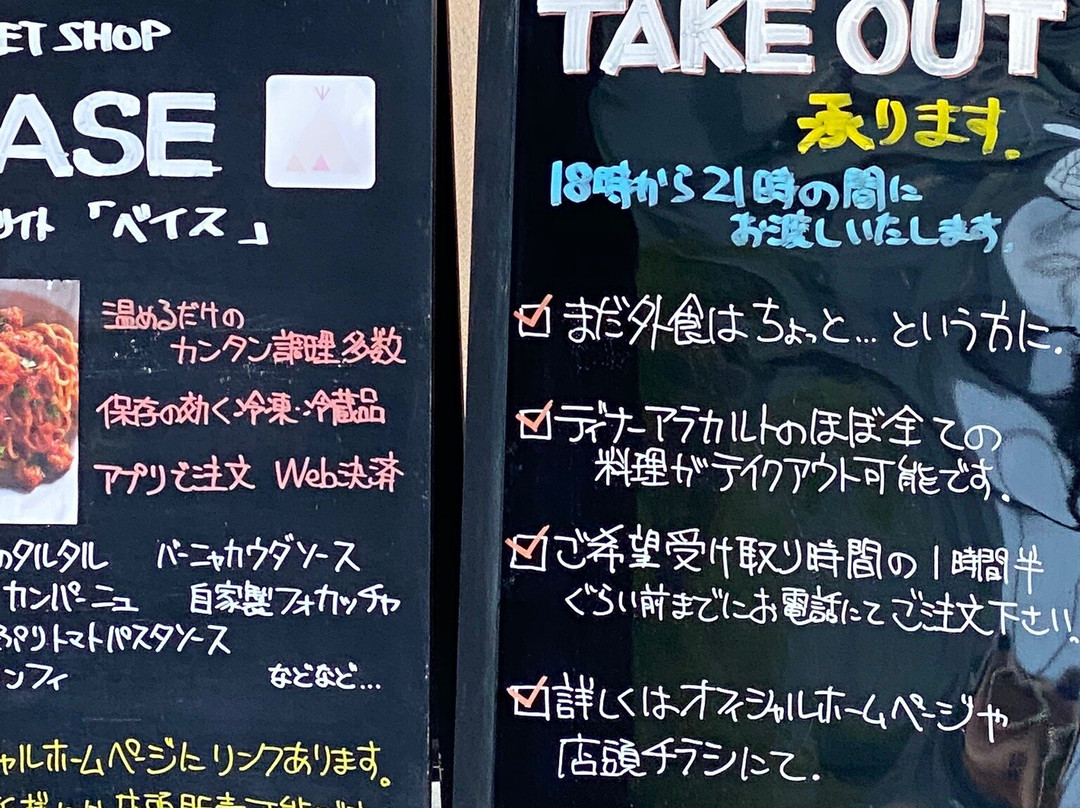 ET SHOP
ASE
サイト 「ベイス」
温めるだけの
カンタン調理多数
保存の効く冷凍・冷蔵品
アプリで注文 Web決済
のタルタル バーニャカウダソース
カンパーニュ 自家製フォカッチャ
トマトパスタソース
ンフィ などなど…
ャルホームページにリンクあります。
TAKE OUT
承ります。
18時から21時の間に
お渡しいたします。
まだ外食はちょっと… という方に.
ディナーアラカルトのほぼ全ての
料理がテイクアウト可能です.
ご希望受け取り時間の1時間半
ぐらい前までにお電話にてご注文下さい。
詳しくはオフィシャルホームページや
店頭チラシにて.